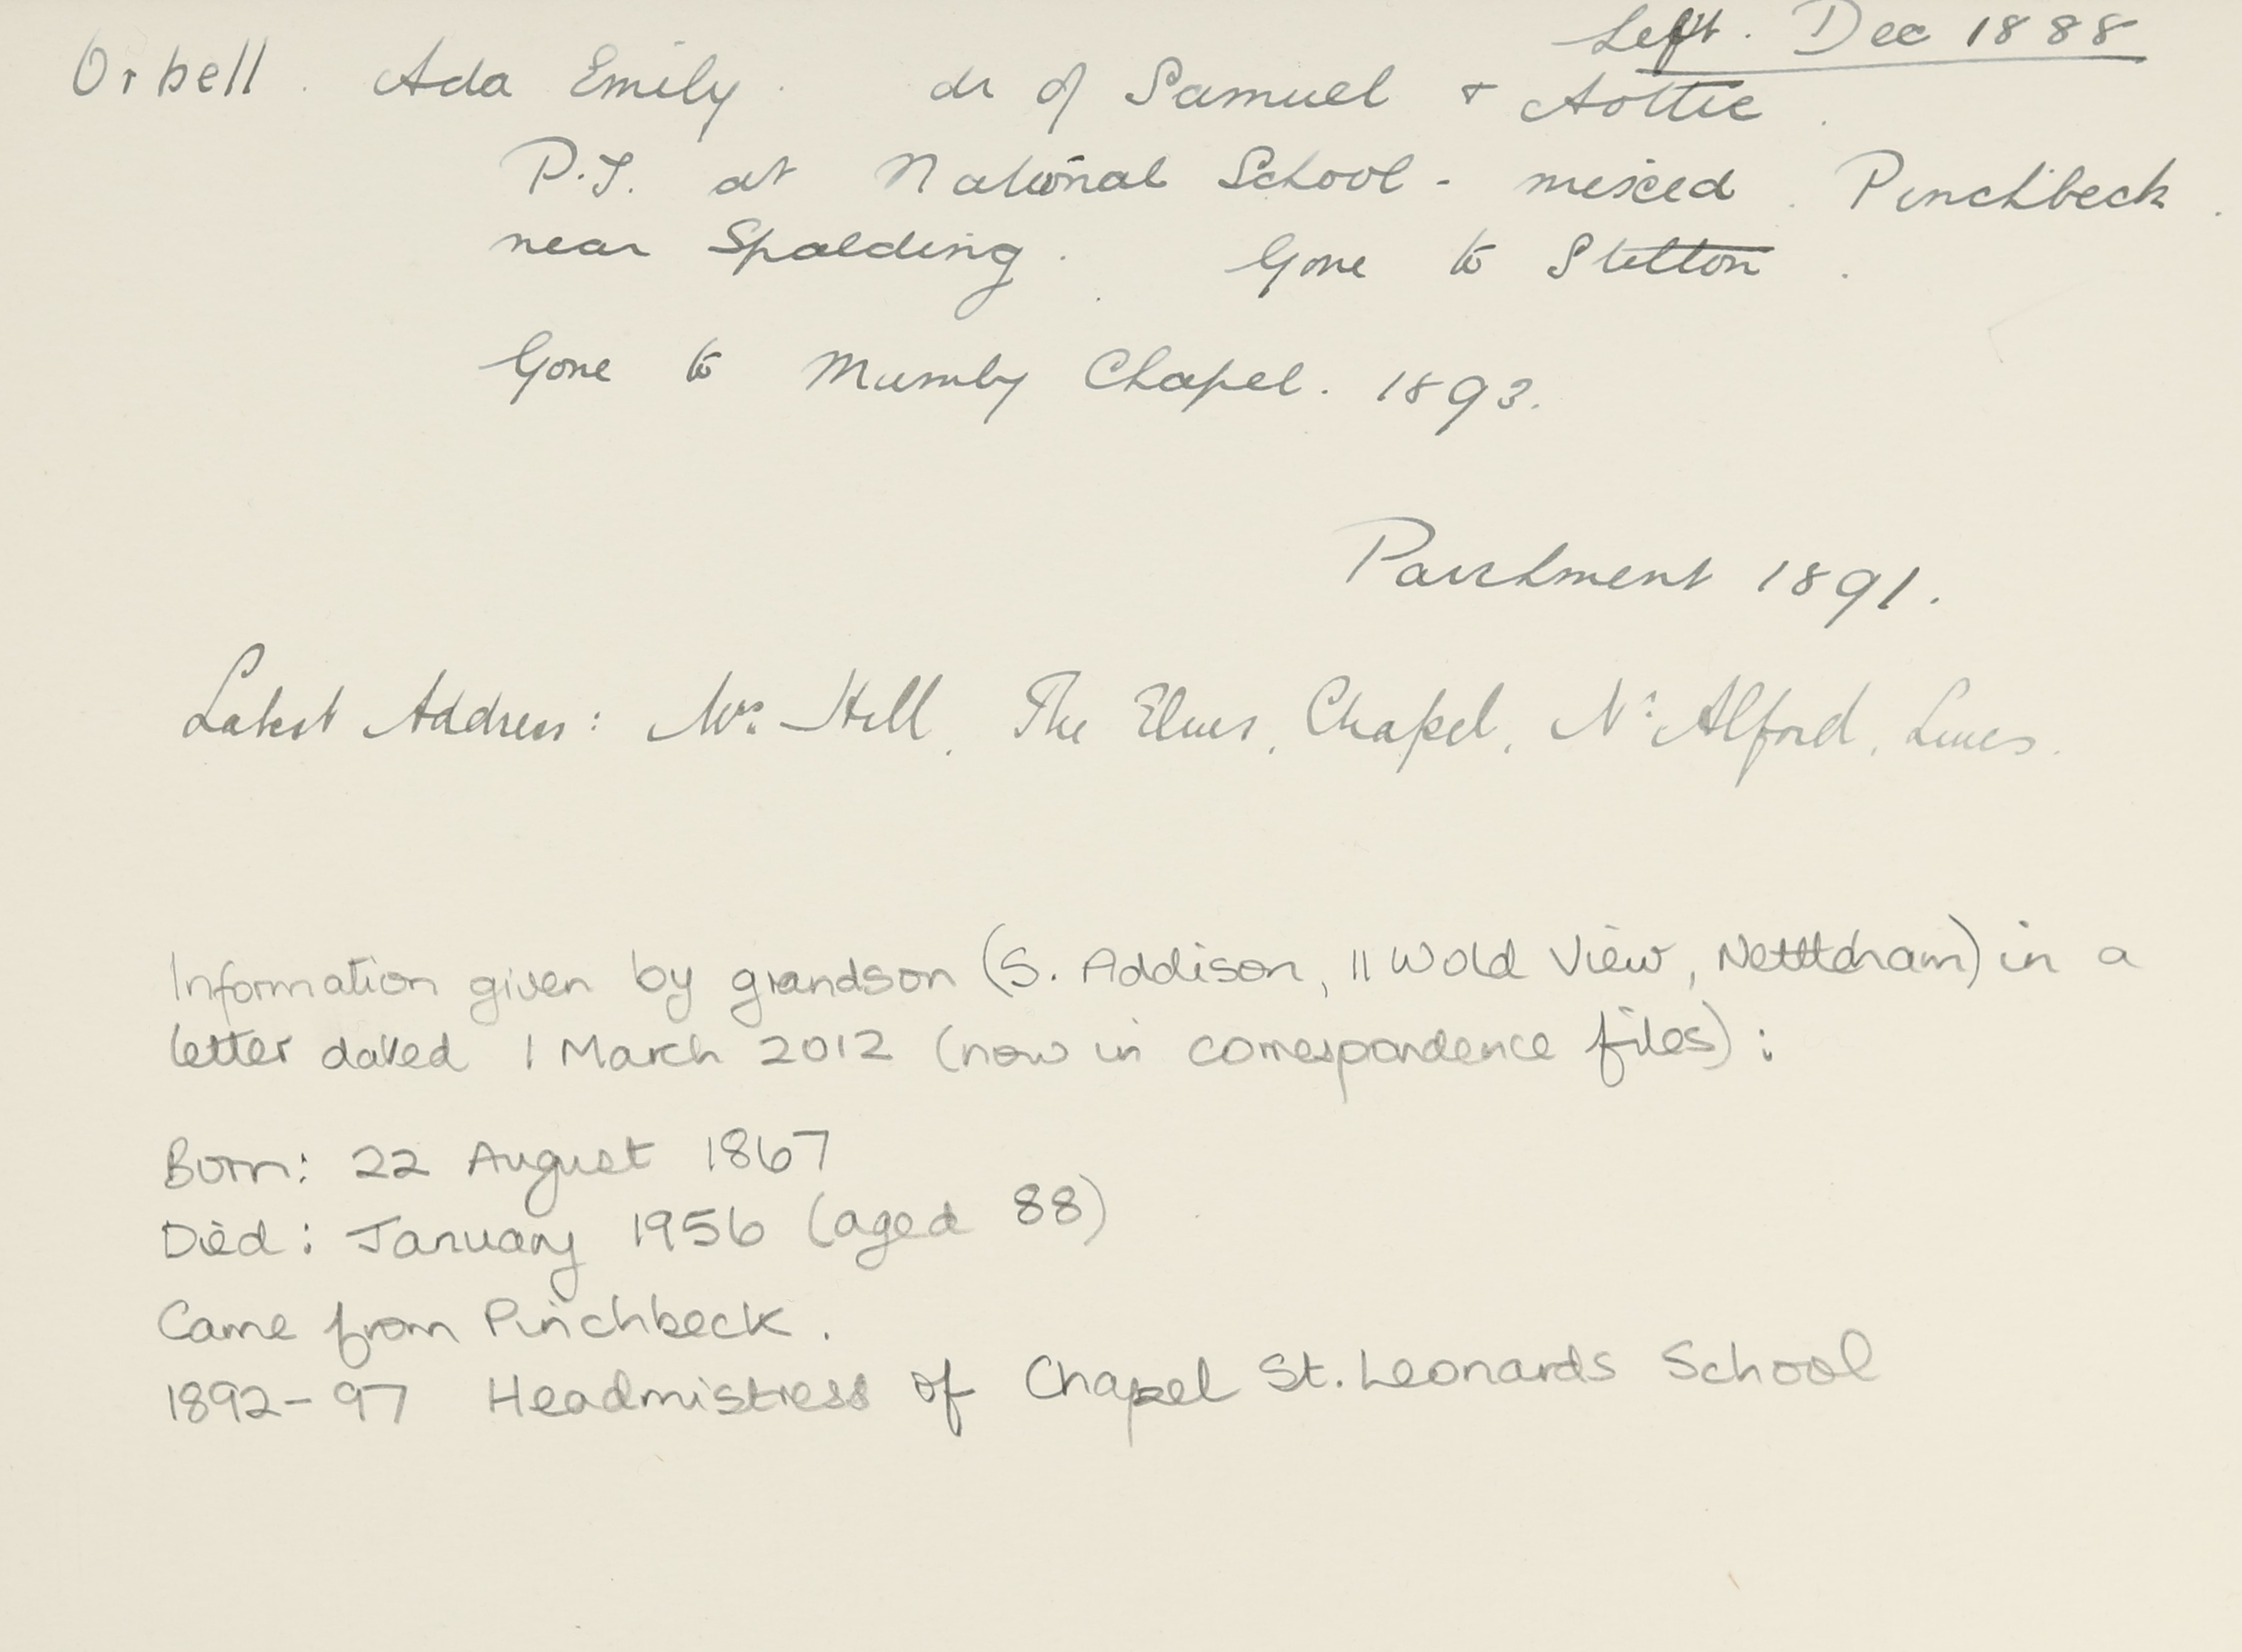 Left. Dec 1888
Orbell. Ada Emily. dr of Samuel +
P.T. at National School - mixed. Pinchbeck.
near Spalding. Gone to Stetton.
Gone to Mumby Chapel. 1893.
Parchment 1891.
Latest Address: Mrs Hill, The Elms, Chapel, Nr Alford, Lincs.
Information given by grandson (S. Addison, 11 Wold View, Nettleham) in a
letter dated 1 March 2012 (now in correspondence files):
Born: 22 August 1867
Died: January 1956 (aged 88)
Came from Pinchbeck.
1892-97 Headmistress of Chapel St. Leonards School